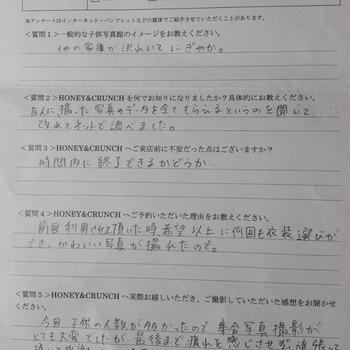 本アンケートはインターネット・パンフレットなどの媒体でご紹介させていただくことがあります。
<質問1>一般的な子供写真館のイメージをお教えください。
他の家族が沢山いてにぎやか。
<質問2>HONEY&CRUNCHを何でお知りになりましたか？具体的にお教えください。
友人に撮った写真のデータを全てもらえるというのを聞いて、
改めてネットで調べました。
<質問3>HONEY&CRUNCHへご来店前に不安だった点はございますか？
時間内に終了できるかどうか…
<質問4>HONEY&CRUNCHへご予約いただいた理由をお教えください。
前回利用させて頂いた時、希望以上に何回も衣装選びが
でき、かわいい写真が撮れたので。
<質問5>HONEY&CRUNCHへ実際お越しいただき、ご撮影していただいた感想をお聞かせ
ください。
今回子供の人数が多かったので集合写真撮影が
とても大変でしたが、最後まで疲れを感じさせず、頑張って